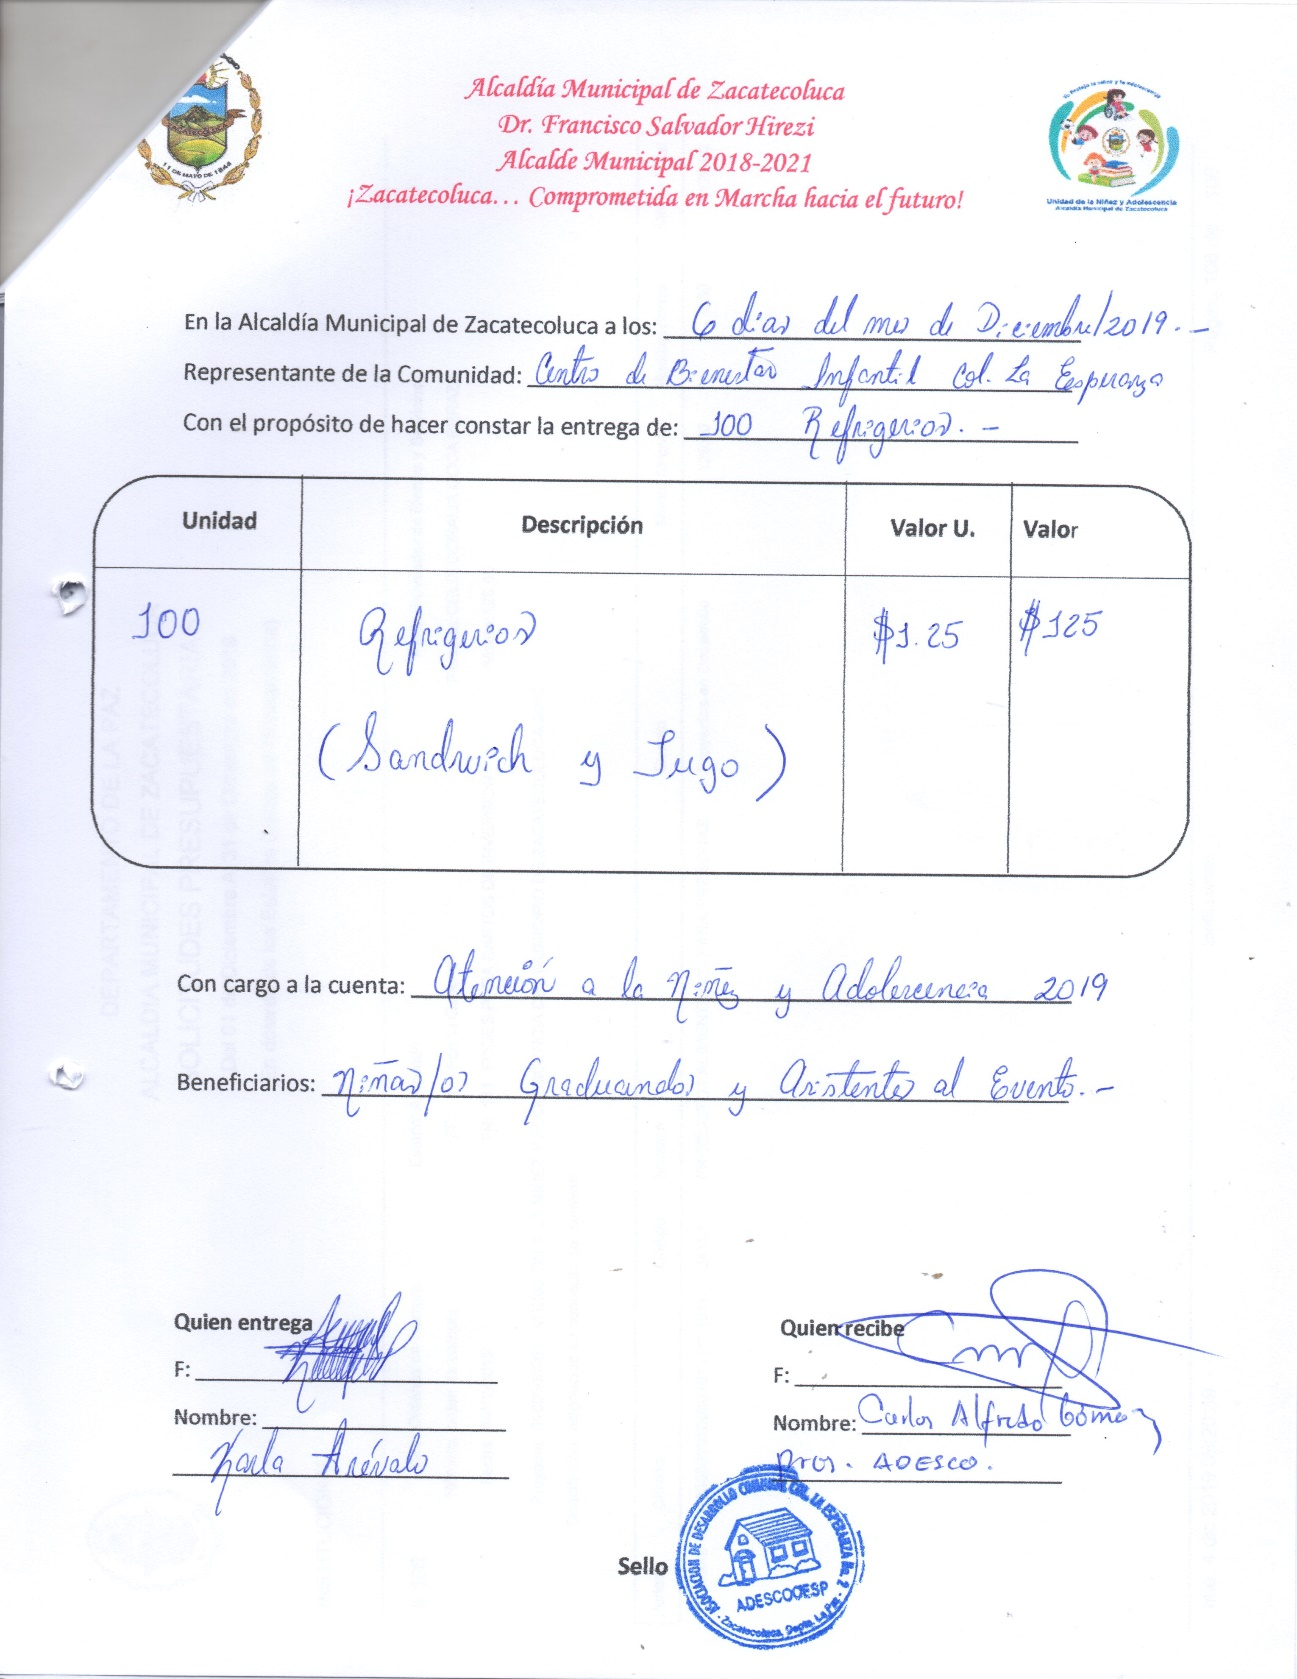 Alcaldía Municipal de Zacatecoluca
Dr. Francisco Salvador Hirezi
Alcalde Municipal 2018-2021
¡Zacatecoluca... Comprometida en Marcha hacia el futuro!
11 DE MAYO DE 1844
Unidad de la Niñez y Adolescencia
Alcaldía Municipal de Zacatecoluca
En la Alcaldía Municipal de Zacatecoluca a los: 6 dias del mes de Diciembre/2019.-
Representante de la Comunidad: Centro de Bienestar Infantil Col. La Esperanza
Con el propósito de hacer constar la entrega de: 100 Refrigerios.-
Unidad Descripción Valor U. Valor
100 Refrigerios $1.25 $125
(Sandwich y Jugo)
Con cargo a la cuenta: Atención a la Niñez y Adolescencia 2019
Beneficiarios: Niñas/os Graduandos y Asistentes al Evento.-
Quien entrega Quien recibe
F: F:
Nombre: Nombre: Carlos Alfredo Gómez
Karla Arévalo Pres. ADESCO.
Sello
ASOCIACION DE DESARROLLO COMUNAL COL. LA ESPERANZA No. 2
ADESCOOESP
- Zacatecoluca, Depto. La Paz -